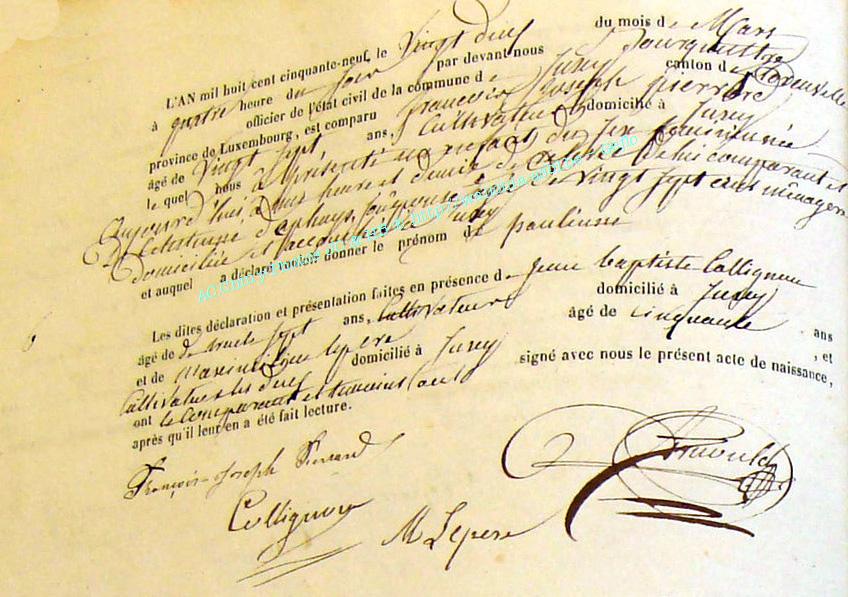 L'AN mil huit cent cinquante-neuf, le Vingt deux du mois de Mars
à quatre heure du soir par devant nous
officier de l'état civil de la commune de Jusey canton de
province de Luxembourg, est comparu François Joseph pierrard
âgé de Vingt sept ans, Cultivateur domicilié à Jusey
le quel nous à présenté un enfant du sexe feminin née
aujourd'hui à heure et demie de de lui comparant et
de son épouse âgé de Vingt sept ans ménagère
domiciliée à Jusey
et auquel a déclaré vouloir donner le prénom de paulinne
Les dites déclaration et présentation faites en présence de Jean baptiste Collignon
âgé de trente sept ans, Cultivateur domicilié à Jusey
et de lepere âgé de cinquante ans
Cultivateur domicilié à Jusey , et
ont le comparant et temoins signé avec nous le présent acte de naissance,
après qu'il leur en a été fait lecture.
François-Joseph Pierrard
Collignon
M Lepere